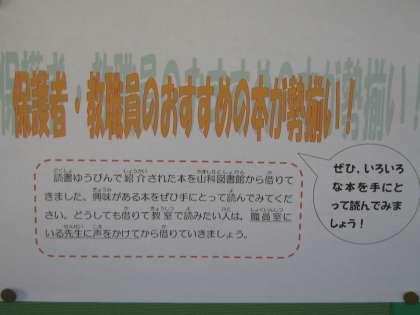 保護者・教職員のおすすめの本が勢揃い！
読書ゆうびんで紹介された本を山科図書館から借りて
きました。興味がある本をぜひ手にとって読んでみてくだ
さい。どうしても借りて教室で読みたい人は、職員室に
いる先生に声をかけてから借りていきましょう。
ぜひ、いろいろ
な本を手にと
って読んでみま
しょう！